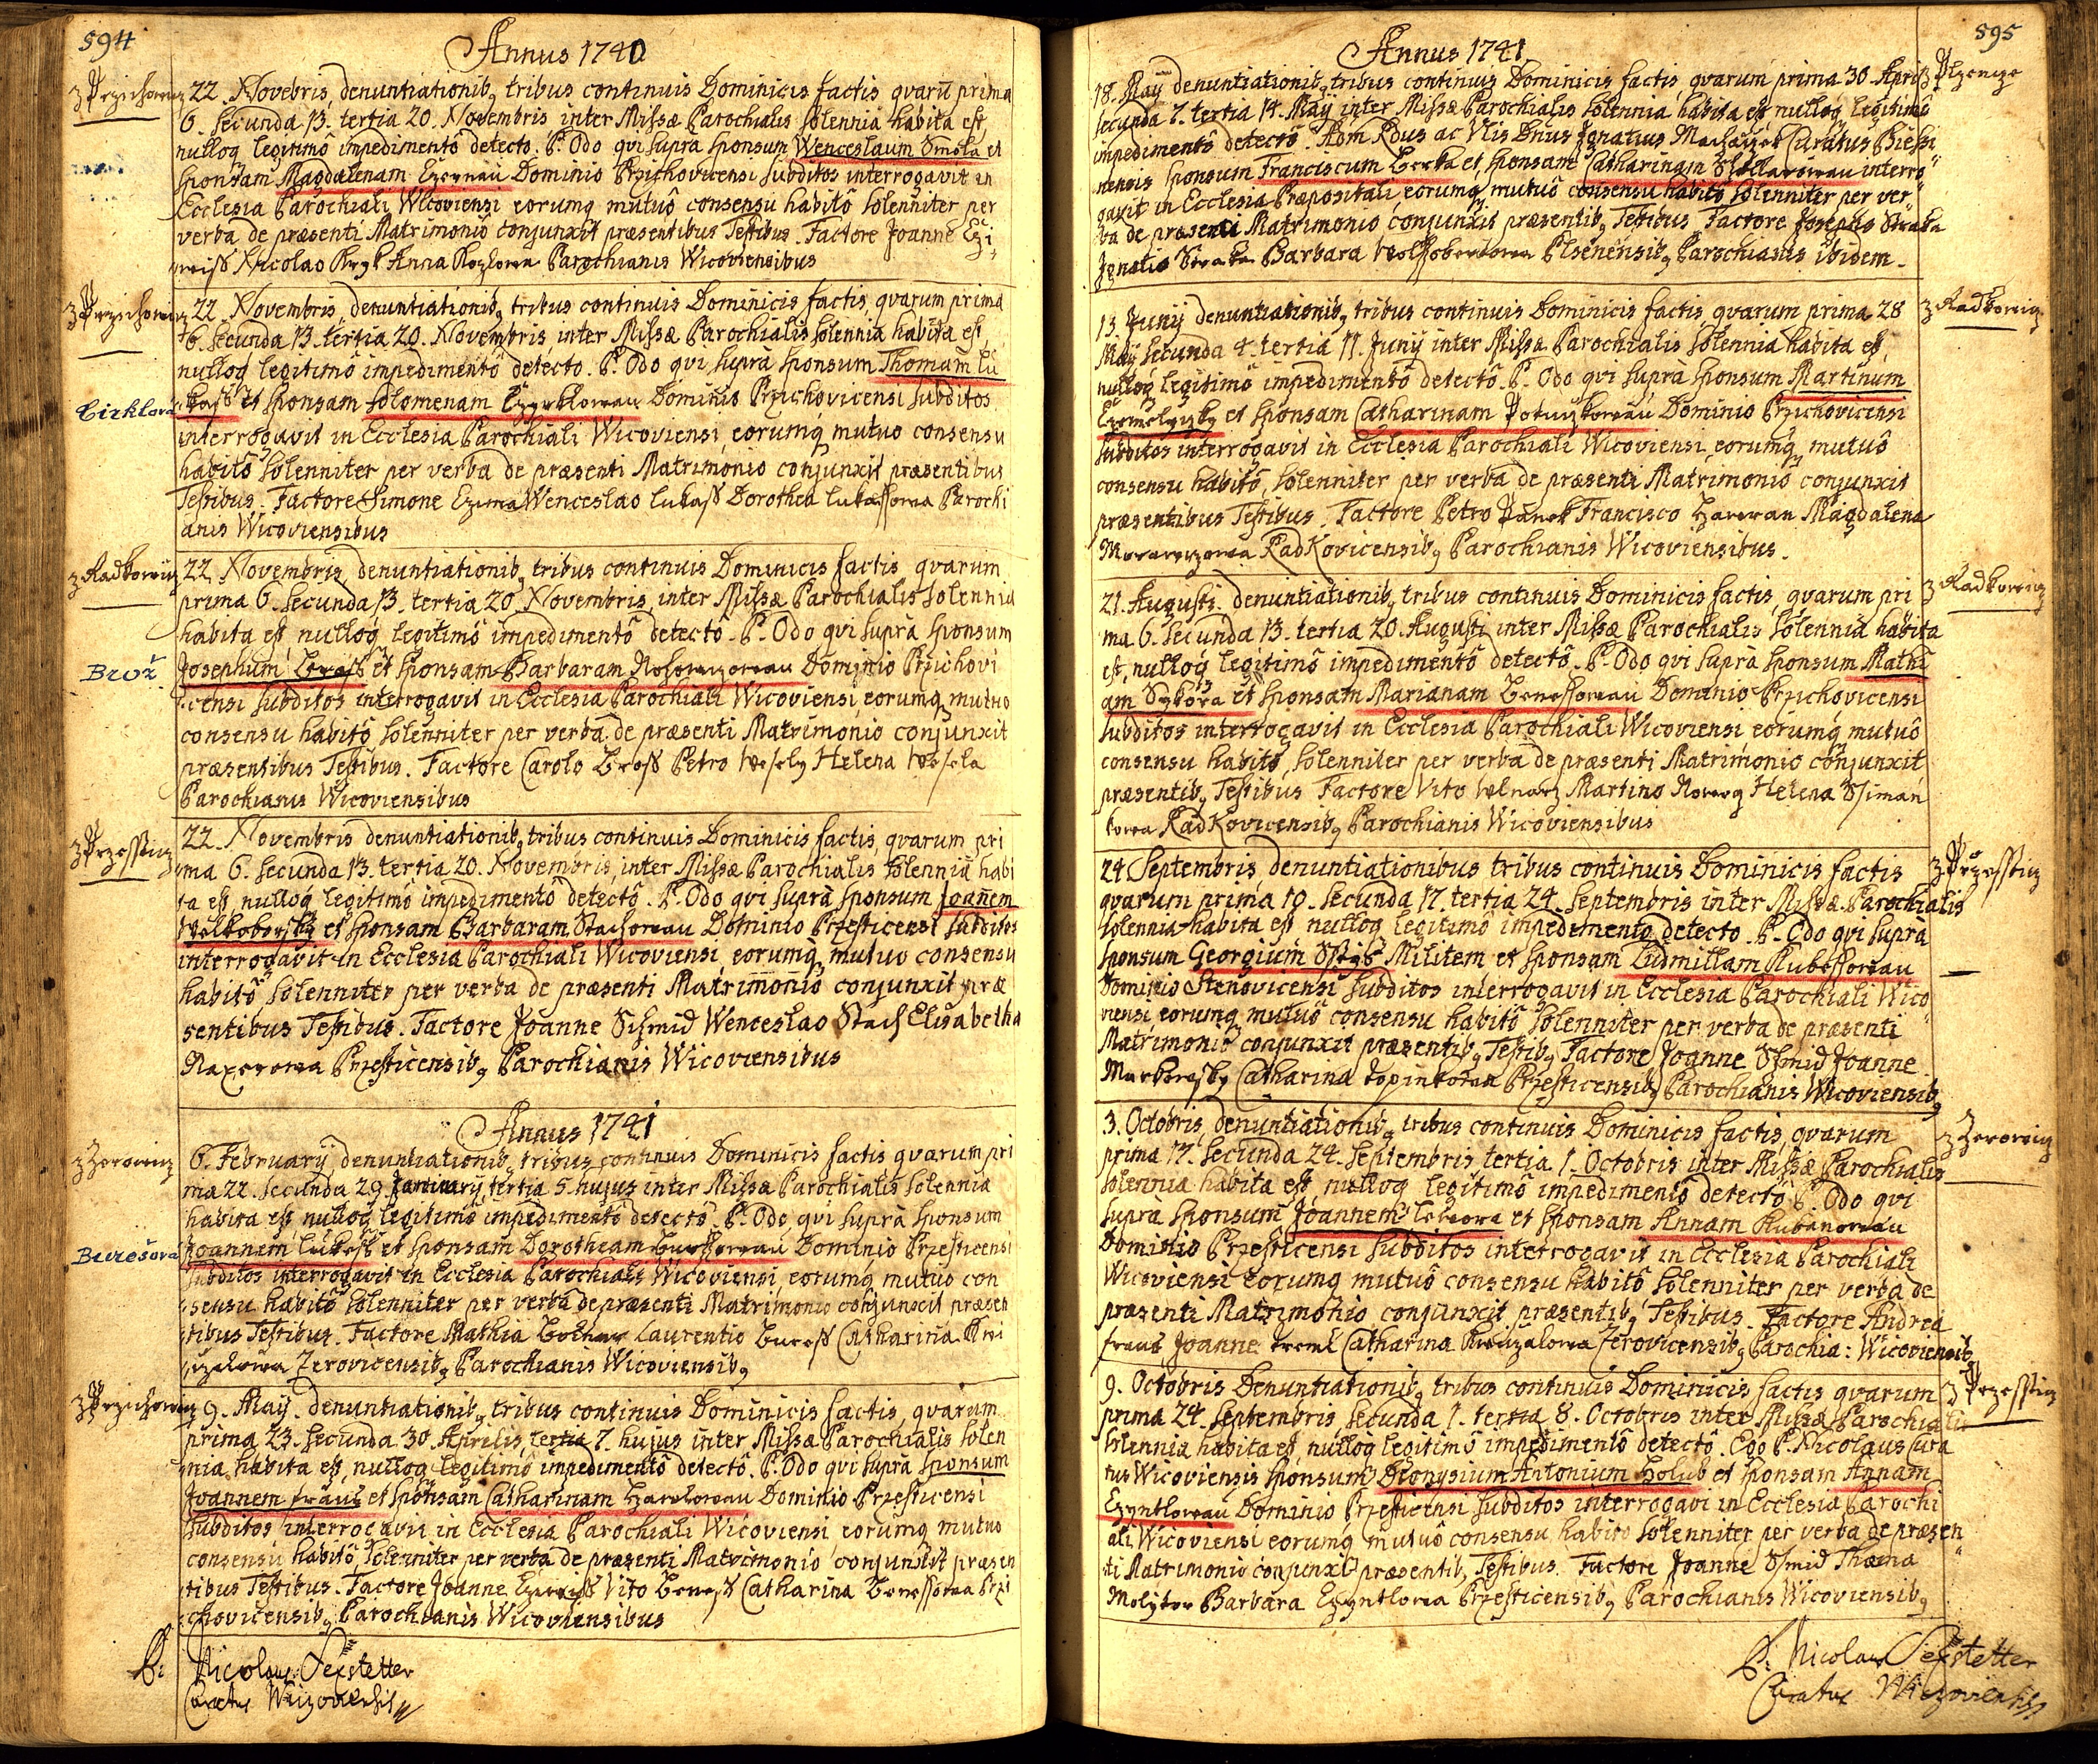 594
Annus 1740
z Przichowiz
22. Novebris, denuntiationib9 tribus continuis Dominicis factis qvarū prima
6. secunda 13. tertia 20. Novembris inter Missæ Parochialis solennia habita est,
nulloq legitimô impedimentô detecto. P. Odo qvi supra sponsum Wenceslaum Smola et
sponsam Magdalenam Dominio Przichovicensi subditos interrogavit in
Ecclesia Parochiali Wicoviensi eorumq mutuô consensu habitô solenniter per
verba de præsenti Matrimoniô conjunxit præsentibus Testibus. Factore Joanne Czi
weiss Nicolao Anna Kozlowa Parochianis Wicoviensibus
z Przichowiz
22. Novembris, denuntiationib9 tribus continuis Dominicis factis, qvarum prima
6. secunda 13. tertia 20. Novembris inter Missæ Parochialis solennia habita est,
nulloq legitimô impedimentô detecto. P. Odo qvi supra sponsum Thomam Lu
Cirklova
kass et sponsam solomenam Dominio Przichovicensi subditos
interrogavit in Ecclesia Parochiali Wicoviensi, eorumq mutuo consensu
habitô solenniter per verba de præsenti Matrimonio conjunxit præsentibus
Testibus. Factore Simone Wenceslao Lukass Dorothea Lukassowa Parochi
anis Wicoviensibus
z Radkowiz
22. Novembris, denuntiationib9 tribus continuis Dominicis factis qvarum
prima 6. secunda 13. tertia 20. Novembris, inter Missæ Parochialis solennia
habita est nulloq legitimô impedimentô detectô. P. Odo qvi supra sponsum
Brož
Josephum et sponsam Barbaram Dominio Przichovi
censi subditos interrogavit in Ecclesia Parochiali Wicoviensi, eorumq mutuo
consensu habitô solenniter per verba de præsenti Matrimonio conjunxit
præsentibus Testibus. Factore Carolo Bross Petro Wesely Helena Wesela
Parochianis Wicoviensibus
z Przesstiz
22. Novembris denuntiationib9 tribus continuis Dominicis factis, qvarum pri
ma 6. secunda 13. tertia 20. Novembris, inter Missæ Parochialis solennia habi
ta est, nulloq legitimô impedimentô detectô. P. Odo qvi supra sponsum Joañem
et sponsam Barbaram Stachowau Dominio Przesticensi subditos
interrogavit in Ecclesia Parochiali Wicoviensi, eorumq mutuo consensu
habitô solenniter per verba de præsenti Matrimonio conjunxit præ
sentibus Testibus. Factore Joanne Schmid Wenceslao Stach Elisabetha
Przesticensib9 Parochianis Wicoviensibus
Annus 1741
z Zerowiz
6. February, denuntiationib9 tribus continuis Dominicis factis qvarum pri
ma 22. secunda 29 January, tertia 5. hujus inter Missæ Parochialis solennia
habita est nulloq legitimô impedimentô detectô. P. Odo, qvi supra sponsum
Burešová
Joannem Lukess et sponsam Dorotheam Buressowau Dominio Przesticensi
subditos interrogavit in Ecclesia Parochiali Wicoviensi, eorumq mutuo con
sensu habitô solenniter per verba de præsenti Matrimonio conjunxit præsen
tibus Testibus. Factore Mathia Laurentio Buress Catharina
Zerovicensib9 Parochianis Wicoviensib9
z Przichowiz
9. May. denuntiationib9 tribus continuis Dominicis factis, qvarum
prima 23. secunda 30. Aprilis, tertia 7. hujus inter Missæ Parochialis solen
nia habita est, nulloq legitimô impedimentô detectô. P. Odo qvi supra sponsum
Joannem et sponsam Catharinam Dominio Przesticensi
subditos interrogavit in Ecclesia Parochiali Wicoviensi eorumq mutuo
consensu habitô, solenniter per verba de præsenti Matrimonio conjunxit præsen
tibus Testibus. Factore Joanne Vito Beness Catharina Benessowa Przi
chovicensib9 Parochianis Wicoviensibus
P: Nicolaus Sexstetter
Curatus
595
Annus 1741
z Plzenize
18. May denuntiationib9 tribus continuis Dominicis factis qvarum prima 30. Apri
secunda 7. tertia 14. May inter Missæ Parochialis solennia habita est nulloq legitimô
impedimentô detectô. Adm Rdus ac Dnus Ignatius Curatus
sponsum Franciscum et sponsam Catharinam interro
gavit in Ecclesia Præpositali eorumq mutuô consensu habitô solenniter per ver
ba de præsenti Matrimonio conjunxit præsentib9 Testibus. Factore Josepho Straka
Ignatio Straka Barbara Plsenensib9 Parochianis ibidem.
z Radkowiz
13. Juny denuntiationib9 tribus continuis Dominicis factis qvarum prima 28
May secunda 4. tertia 11. Juny inter Missæ Parochialis solennia habita est,
nulloq legitimô impedimentô detectô. P. Odo qvi supra sponsum Martinum
et sponsam Catharinam Dominio Przichovicensi
subditos interrogavit in Ecclesia Parochiali Wicoviensi, eorumq mutuô
consensu habitô, solenniter per verba de præsenti Matrimoniô conjunxit
præsentibus Testibus. Factore Petro Panek Francisco Magdalena
Radkovicensib9 Parochianis Wicoviensibus.
z Radkowiz
21. Augusti. denuntiationib9 tribus continuis Dominicis factis, qvarum pri
ma 6. secunda 13. tertia 20. Augusti inter Missæ Parochialis solennia habita
est, nulloq legitimô impedimentô detectô. P. Odo qvi supra sponsum Mathi
am Sykora et sponsam Marianam Benessowau Dominio Przichovicensi
subditos interrogavit in Ecclesia Parochiali Wicoviensi eorumq mutuô
consensu habitô, solenniter per verba de præsenti Matrimonio conjunxit
præsentib9 Testibus Factore Vito Martino Helena Ssiman
kowa Radkovicensib9 Parochianis Wicoviensibus
z Przesstiz
24 Septembris, denuntiationibus tribus continuis Dominicis factis
qvarum prima 10. secunda 17. tertia 24. Septembris inter Missæ Parochialis
solennia habita est nulloq legitimô impedimento detecto. P. Odo qvi supra
sponsum Georgium Militem et sponsam Ludmillam Kubessowau
Dominio Stenovicensi subditos interrogavit in Ecclesia Parochiali Wico
viensi eorumq mutuô consensu habitô solenniter per verba de præsenti
Matrimonio conjunxit præsentib9 Testib9 Factore Joanne Shmid Joanne
Catharina Przesticensib9 Parochianis Wicoviensib9
z Zerowiz
3. Octobris, denuntiationib9 tribus continuis Dominicis factis, qvarum
prima 17. secunda 24. Septembris tertia 1. Octobris inter Missæ Parochialis
solennia habita est nulloq legitimô impedimentô detectô P. Odo qvi
supra sponsum Joannem et sponsam Annam
Dominio Przesticensi subditos interrogavit in Ecclesia Parochiali
Wicoviensi eorumq mutuô consensu habitô solenniter per verba de
præsenti Matrimonio conjunxit præsentib9 Testibus. Factore Andrea
Joanne Catharina Zerovicensib9 Parochia: Wicoviensib9
z Przesstiz
9. Octobris Denuntiationib9 tribus continuis Dominicis factis qvarum
prima 24. Septembris, secunda 1. tertia 8. Octobris inter Missæ Parochialis
solennia habita est, nulloq legitimô impedimentô detectô. Ego P. Nicolaus Cura
tus Wicoviensis sponsum Dionysium Antonium Holub et sponsam Annam
Dominio Przesticensi subditos interrogavi in Ecclesia Parochi
ali Wicoviensi eorumq mutuô consensu habito solenniter per verba de præsen
ti Matrimonio conjunxi præsentib9 Testibus. Factore Joanne Shmid Thoma
Molytor Barbara Przesticensib9 Parochianis Wicoviensib9
P: Nicolaus Sexstetter
Curatus